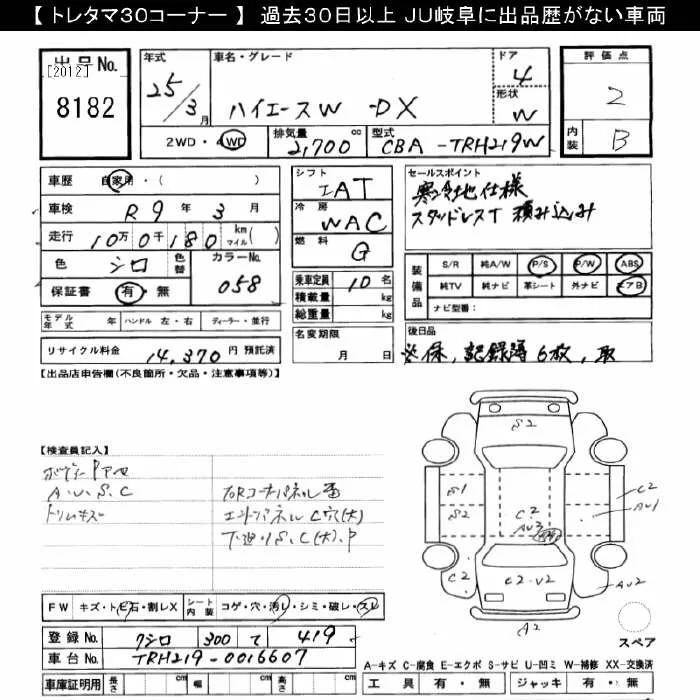 【 トレタマ30コーナー 】 過去30日以上 JU岐阜に出品歴がない車両
出品No.
[2012]
8182
年式
25/3月
車名・グレード
ハイエースW DX
ドア
4
形状
W
評価点
2
内装
B
2WD・4WD
排気量
2,700 cc
型式
CBA -TRH219W
車歴 自家用・( )
車検 R9年 3月
走行 10万0千180 km マイル( )
色 シロ 色替 カラーNo. 058
保証書 有・無
シフト
IAT
冷房
WAC
燃料
G
乗車定員 10名
積載量 kg
総重量 kg
セールスポイント
寒冷地仕様
スタッドレスT 積み込み
装備品
S/R 純A/W P/S P/W ABS
純TV 純ナビ 革シート 外ナビ エアB
ナビ型番:
モデル年式 年 ハンドル 左・右 ディーラー・並行
リサイクル料金 14,370 円 預託済
名変期限
月 日
後日品
保, 記録簿6枚, 取
【出品店申告欄(不良箇所・欠品・注意事項等)】
【検査員記入】
A.U.S.C
トリムキズ
エンドパネルC穴(大)
下廻りS.C(大).P
S2
S1
S2
C2
AU3
C2
AU1
C2
C2・U2
AU2
A2
スペア
FW キズ・トビ石・割レX シート内装 コゲ・穴・汚レ・シミ・破レ・スレ
登録No. クシロ 300 て 419
車台No. TRH219-0016607
車庫証明用 長さ cm 幅 cm 高さ cm
A-キズ C-腐食 E-エクボ S-サビ U-凹ミ W-補修 XX-交換済
工具 有・無 ジャッキ 有・無